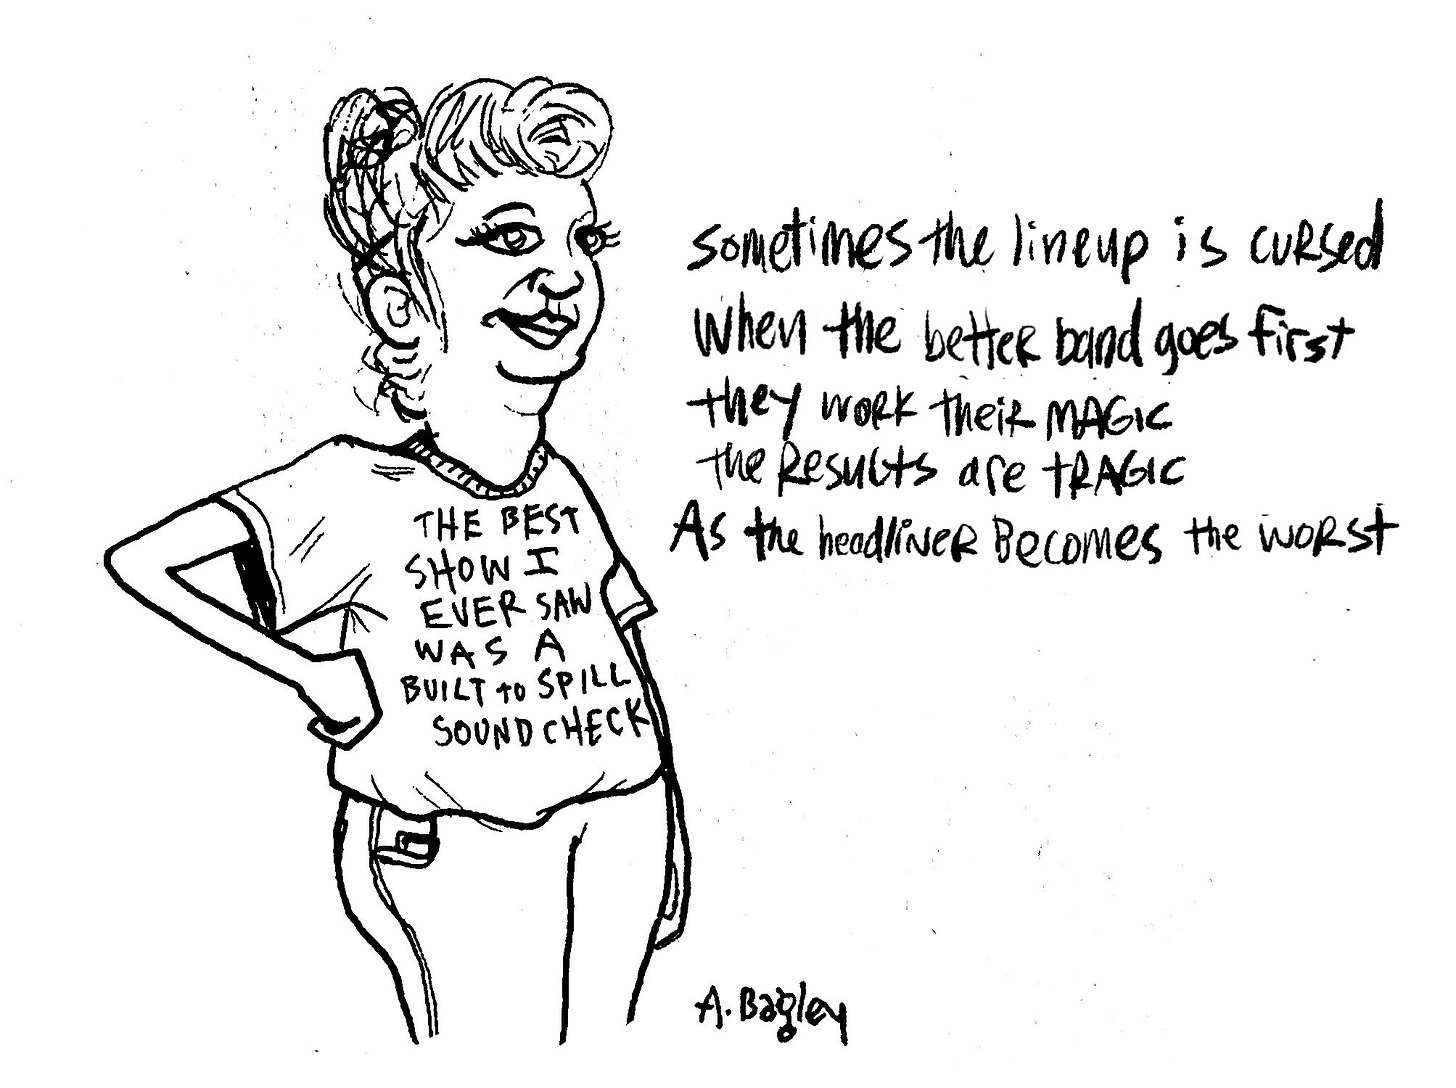 sometimes the lineup is cursed
when the better band goes first
they work their MAGIC
the Results are tRAGIC
As the headliner Becomes the worst
THE BEST
SHOW I
EVER SAW
WAS A
BUILT to SPILL
SOUNDCHECK
A. Bagley